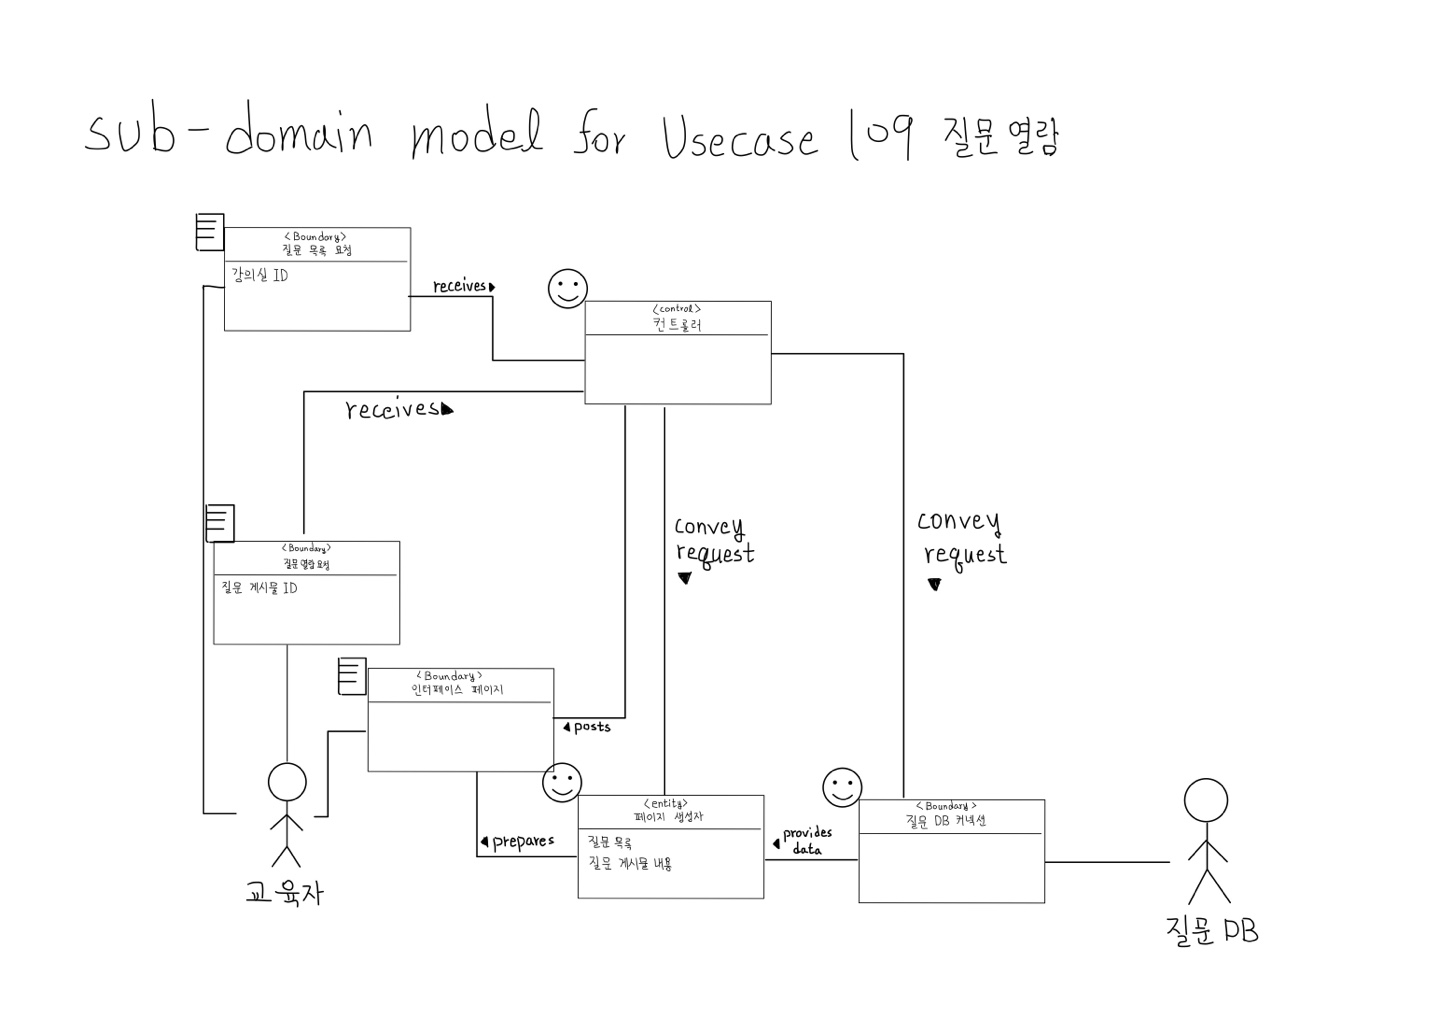 sub-domain model for Usecase 109 질문 열람
<Boundary>
질문 목록 요청
강의실 ID
receives
<control>
컨트롤러
receives
convey
request
convey
request
<Boundary>
질문 열람 요청
질문 게시물 ID
<Boundary>
인터페이스 페이지
posts
<entity>
페이지 생성자
질문 목록
질문 게시물 내용
prepares
provides
data
<Boundary>
질문 DB 커넥션
교육자
질문 DB